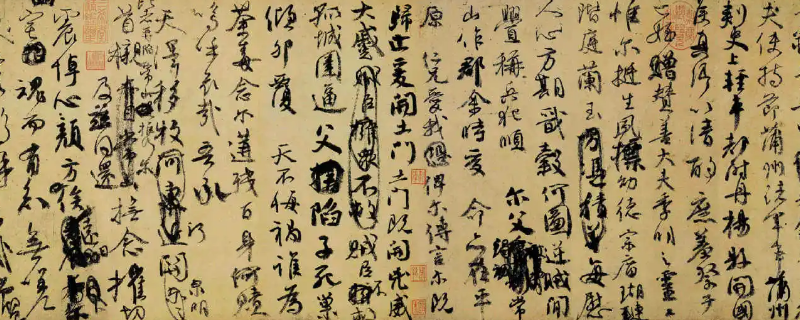 夫使持節蒲州諸軍事蒲州
刺史上輕車都尉丹楊縣開國
侯真卿以清酌庶羞祭于
亡姪贈贊善大夫季明之靈曰
惟爾挺生夙標幼德宗廟瑚璉
階庭蘭玉方憑積善每慰
人心方期戩穀何圖逆賊閒
釁稱兵犯順 爾父竭誠常
山作郡余時受 命亦在平
原 仁兄愛我俾爾傳言爾既
歸止爰開土門土門既開凶威
大蹙賊臣擁眾不救賊臣不
孤城圍逼 父擒陷子死巢
傾卵覆 天不悔禍誰為
荼毒念爾遘殘百身何贖
嗚呼哀哉 吾承
天澤移牧河東近 泉明
比者再陷常山攜爾
首櫬 及茲同還 撫念摧切
震悼心顏方俟遠日
魂而有知無嗟